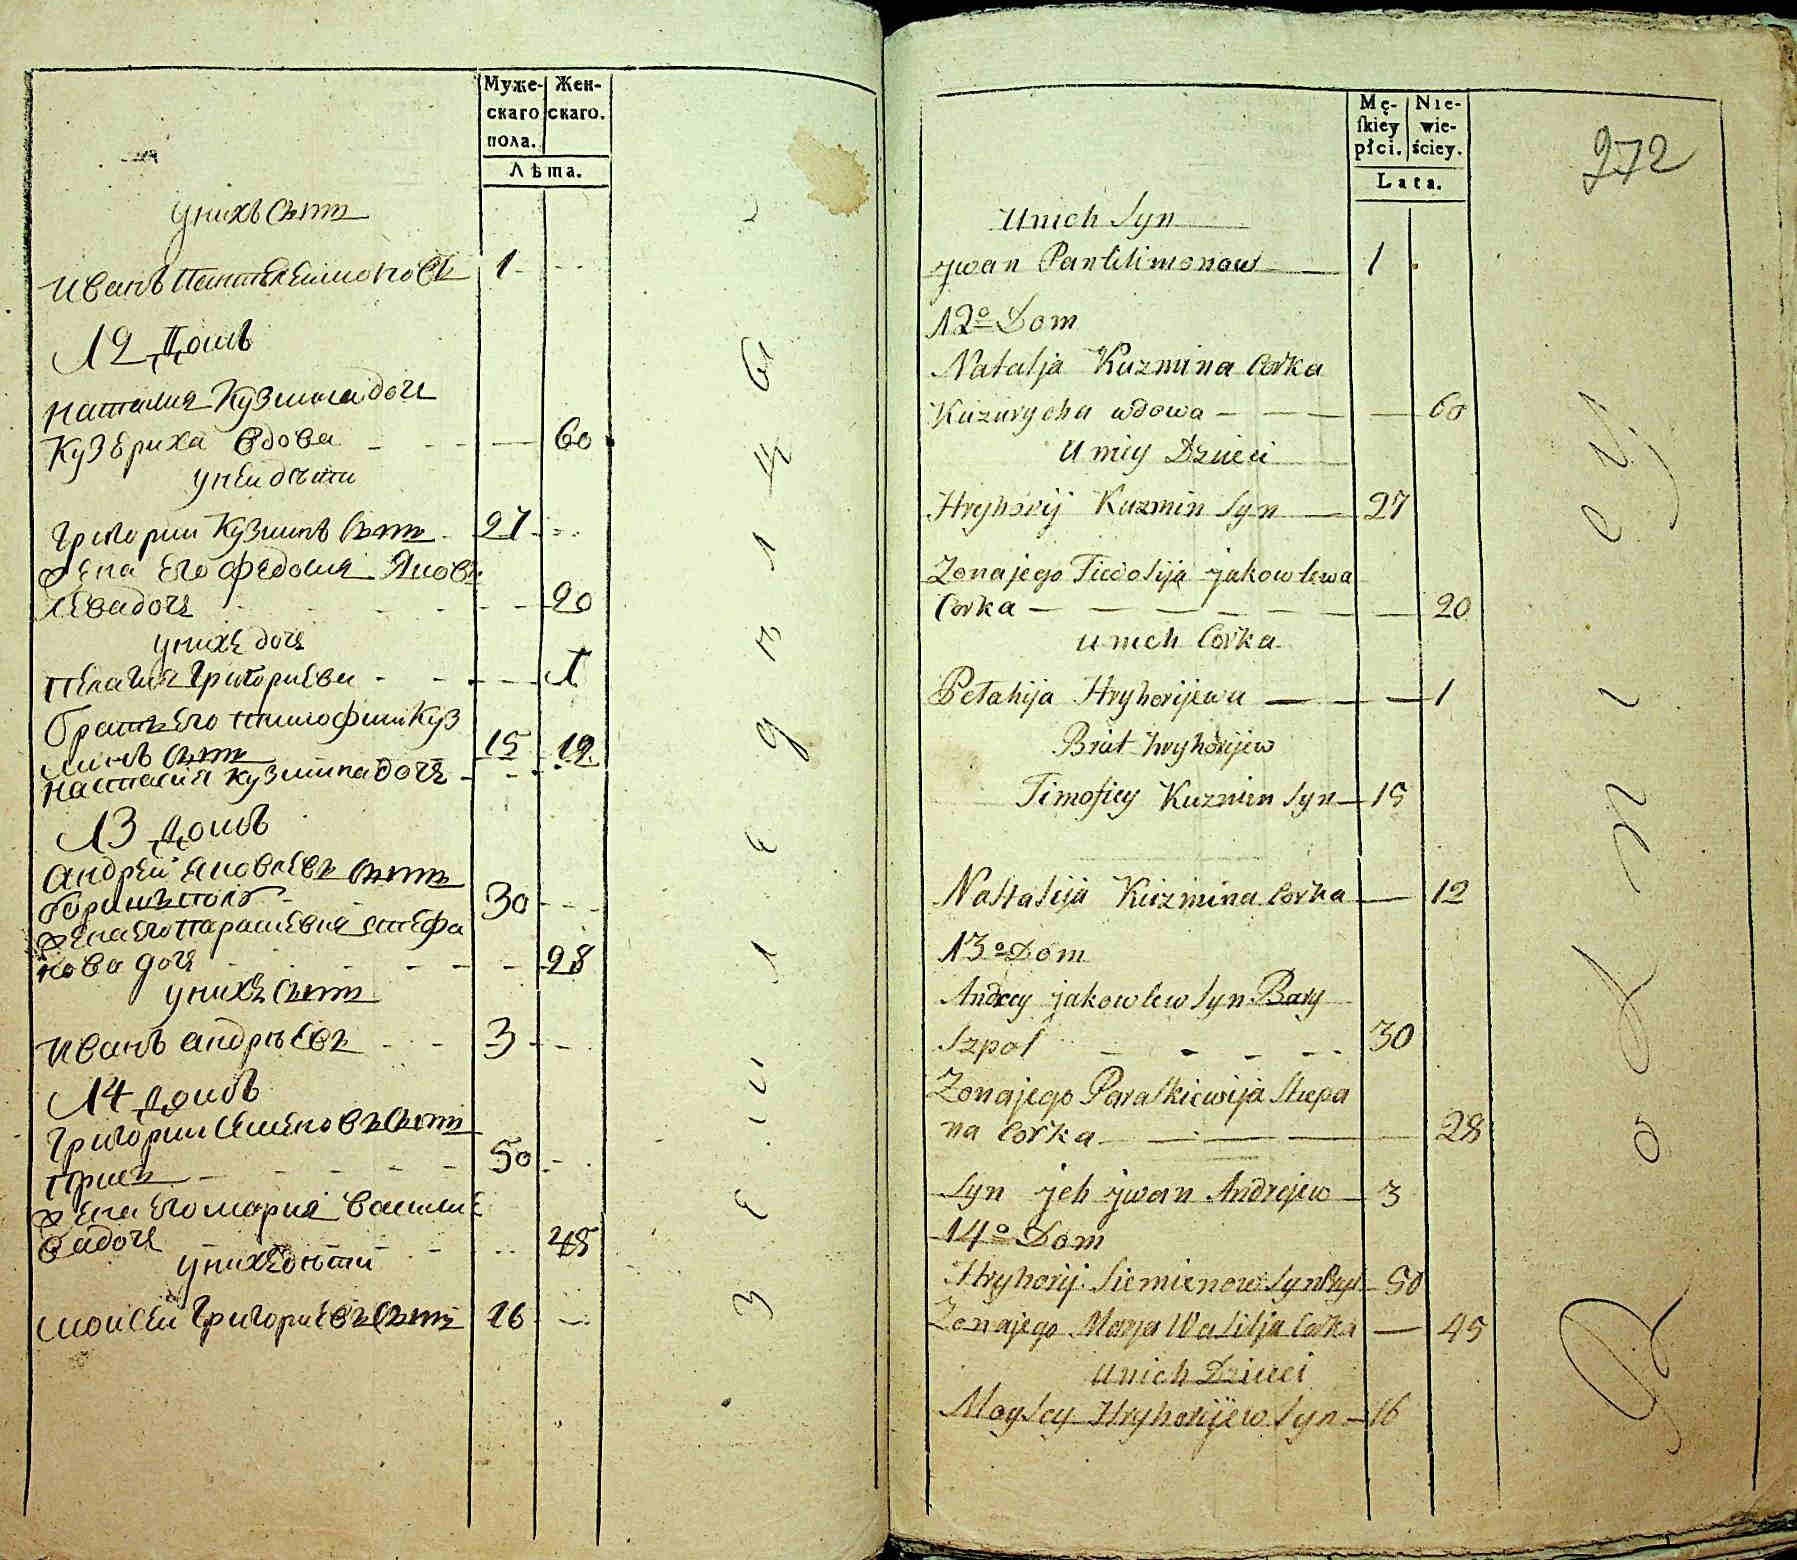 Муже-
скаго
пола.
Жен-
скаго.
Лѣта.
унихъ сынъ
Иванъ Пантелеимоновъ 1
12 Домъ
Наталия Кузмина доч
Кузериха вдова 60
уней дѣти
Григории Кузминъ сынъ 27
жена его Федосия Яков
лева доче 20
унихъ доче
Пелагия Григориева 1
братъ его тимофии Куз
минъ сынъ 15 12
Насталия Кузмина доче
13 Домъ
Андрей Яковлевъ сынъ
30
жена его Парасцевия стефа
нова доче 28
унихъ сынъ
Иванъ андрѣевъ 3
14 домъ
Григории Семеновъ сынъ
50
жена его мария василие
ва доче 45
унихъ дѣти
Моисеи Григориевъ сынъ 16
Mę-
ſkiey
płci.
Nie-
wie-
ściey.
Lata.
272
Unich Syn
jwan Pantilimonow 1
12º Dom
Natalja Kuzmina Corka
Kuzurycha wdowa 60
U niey Dzieci
Hryhorij Kuzmin Syn 27
Zona jego Fiedosija jakowlewa
Corka 20
u nich Corka
Pelahija Hryhorijewa 1
Brat hryhorijew
Timofiey Kuzmin Syn 15
Nastasija Kuzmina Corka 12
13º Dom
Andrey jakowlew Syn Bary
Szpol 30
Zona jego Paraskiewija Stepa
na Corka 28
Syn jch jwan Andrejew 3
14º Dom
Hryhorij Siemienow Syn 50
Zona jego Marja Wasilja Corka 45
Unich Dzieci
Moysey Hryhorijew Syn 16